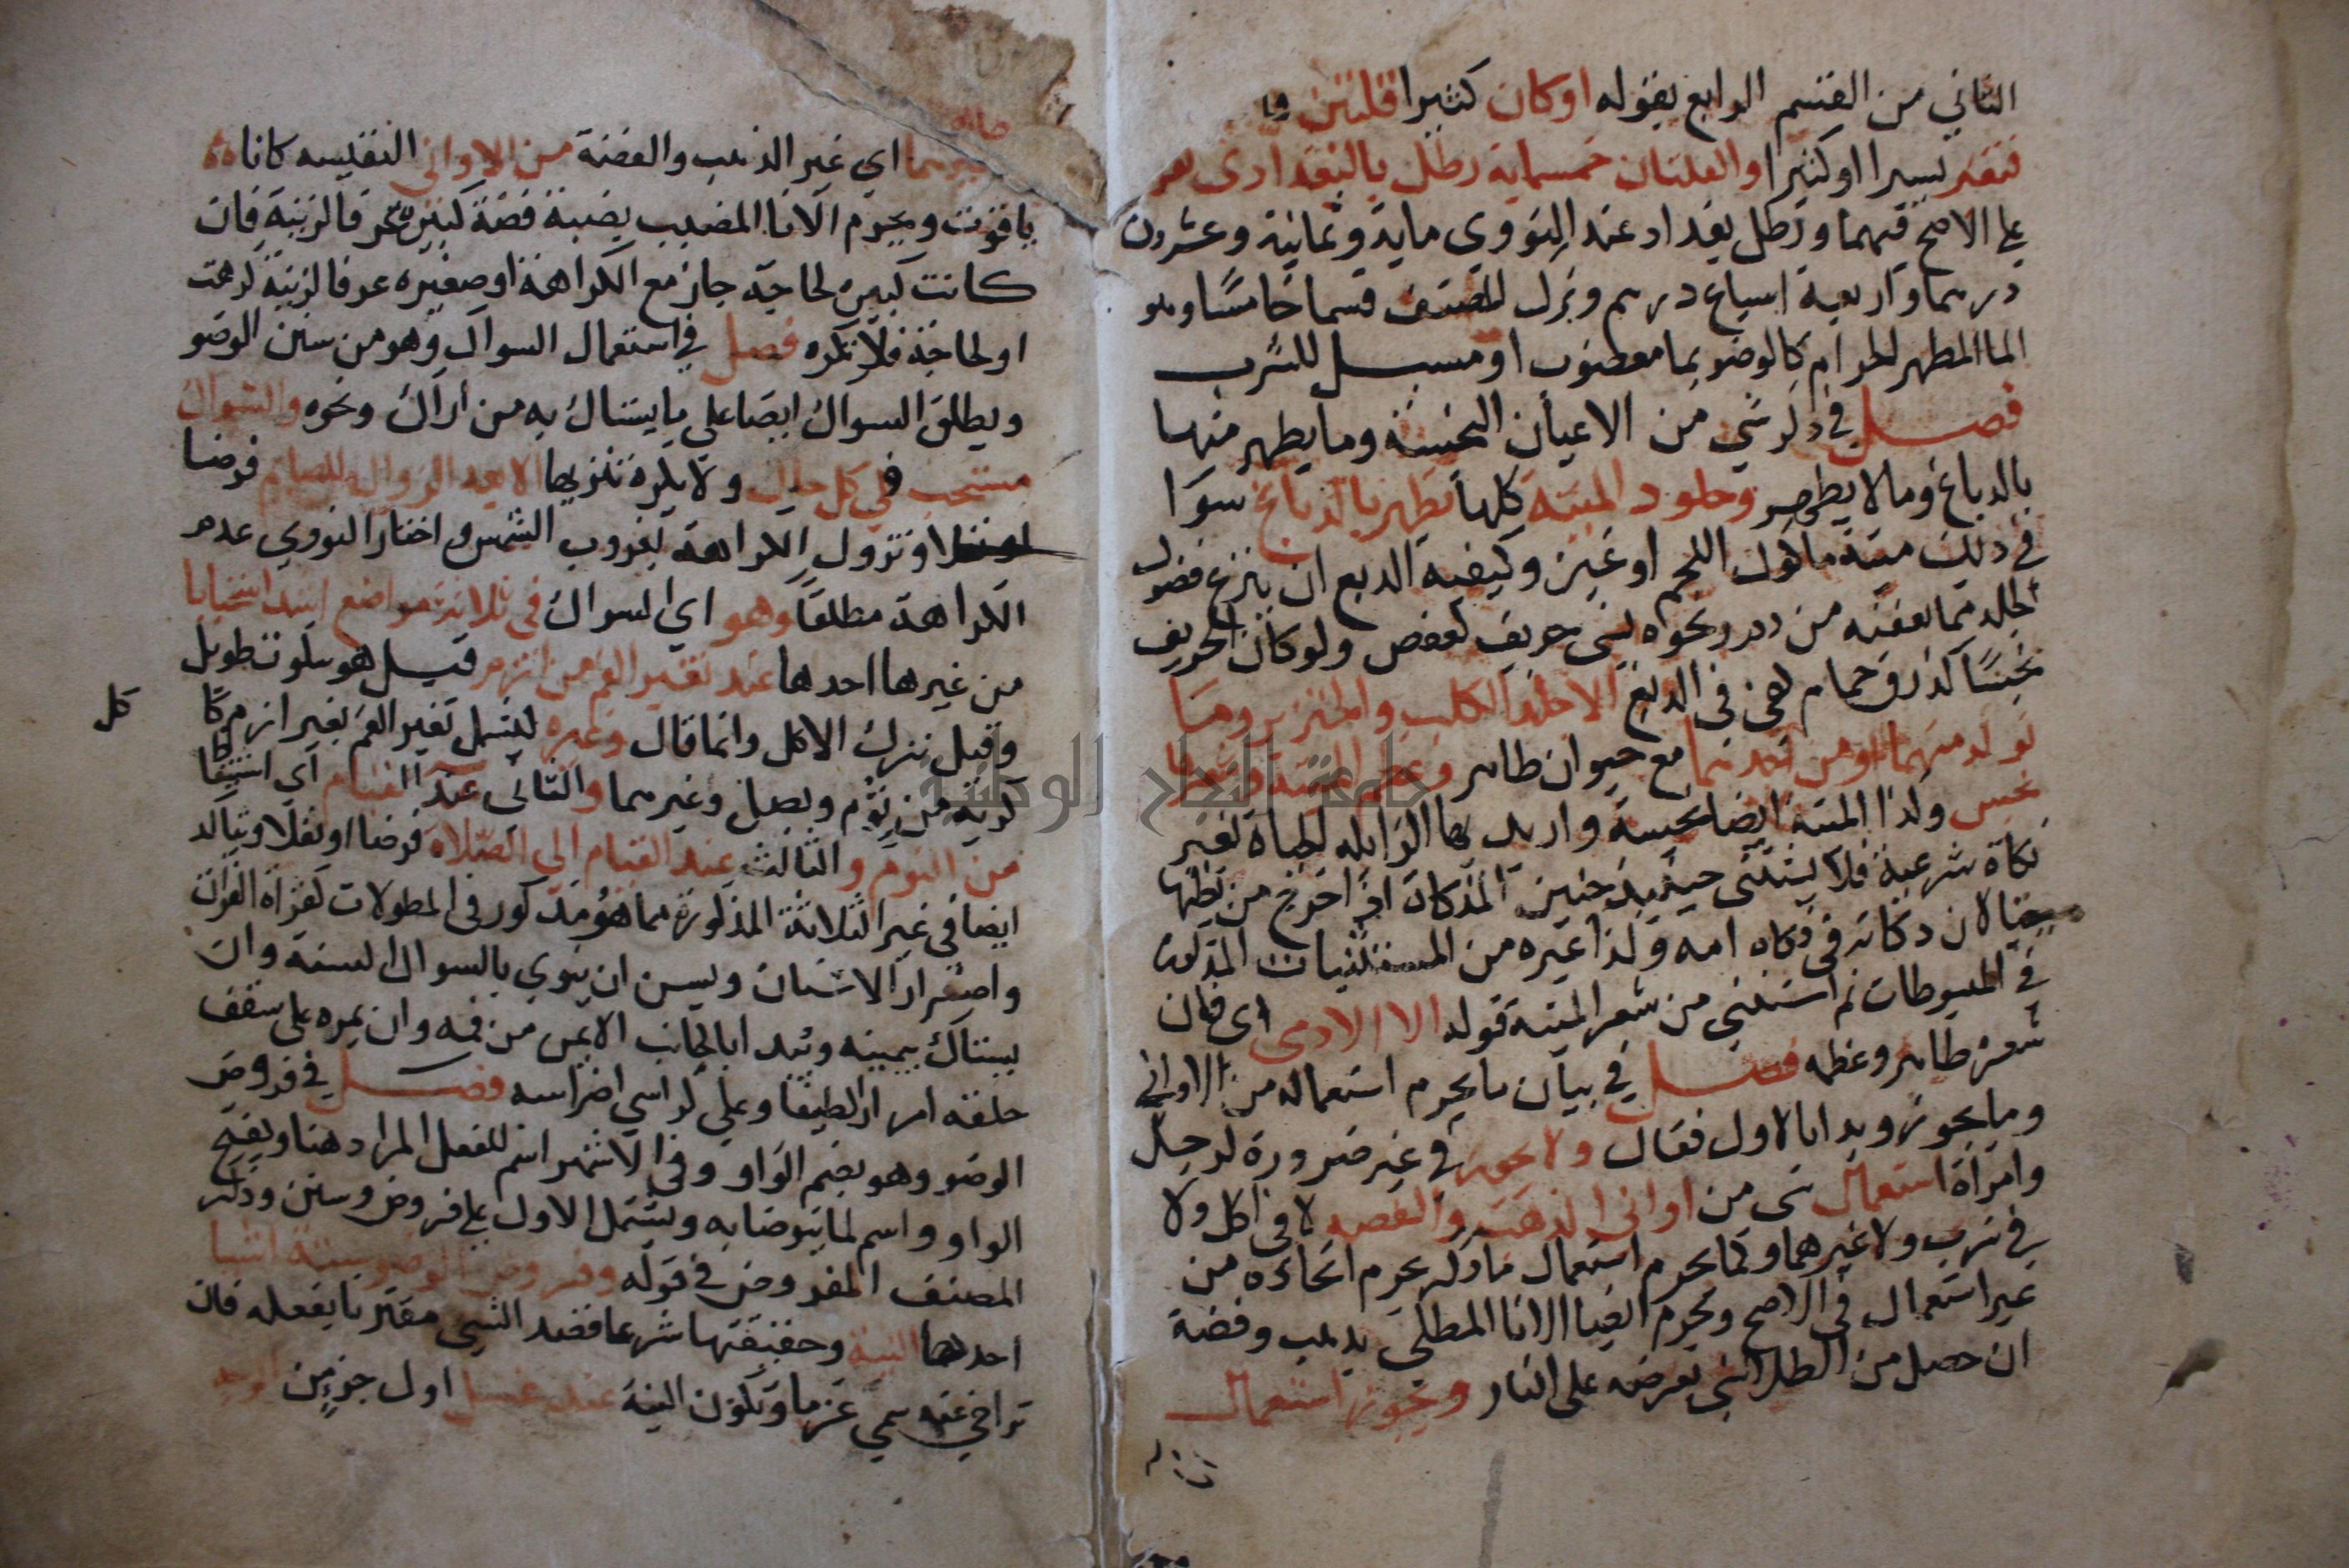 الثاني من القسم الرابع بقوله او كان كثيرا قلتين
فتغير يسيرا او كثيرا والقلتان خمسماية رطل بالبغدادي
علي الاصح فيهما ورطل بغداد عند النووي ماية وثمانية وعشرون
درهما واربعة اسباع درهم وترك المصنف قسما خامسا وهو
الما المطهر الحرام كالوضو بما مغصوب او مسبل للشرب
فصل في ذكر شي من الاعيان النجسة وما يطهر منها
بالدباغ وما لا يطهر وجلود الميتة كلها تطهر بالدباغ سوا
في ذلك ميتة ماكول اللحم او غيره وكيفية الدبغ ان ينزع فضول
الجلد مما يعفنه من دم ونحوه بشي حريف كعفص ولو كان الحريف
نجسا كذرق حمام كفي في الدبغ الا جلد الكلب والخنزير وما
تولد منهما او من احدهما مع حيوان طاهر وعظم الميتة وشعرها
نجس وكذا الميتة ايضا نجسة واريد بها الزايلة الحياة بغير
ذكاة شرعية فلا يستثني حينيذ جنين المذكاة اذا اخرج من بطنها
ميتا لان ذكاته في ذكاة امه وكذا غيره من المستثنيات المذكورة
في المبسوطات ثم استثني من شعر الميتة قوله الا الادمي اي فان
شعره طاهر وعظمه فصل في بيان ما يحرم استعماله من الاواني
وما يجوز وبدا بالاول فقال ولا يجوز في غير ضرورة لرجل
وامراة استعمال شي من اواني الذهب والفضة لا في اكل ولا
في شرب ولا غيرهما وكما يحرم استعمال ما ذكر يحرم اتخاذه من
غير استعمال في الاصح ويحرم ايضا الانا المطلي بذهب وفضة
ان حصل من الطلا شي بعرضه علي النار ويجوز استعمال
غيرهما اي غير الذهب والفضة من الاواني النفيسه كاناء
ياقوت ويحرم الانا المضبب بضبة فضة كبيرة عرفا لزينة فان
كانت كبيرة لحاجة جاز مع الكراهة او صغيره عرفا لزينة كرهت
او لحاجة فلا تكره فصل في استعمال السواك وهو من سنن الوضو
ويطلق السواك ايضا علي ما يستاك به من أراك ونحوه والسواك
مستحب في كل حال ولا يكره تنزيها الا بعد الزوال للصايم فرضا
او نفلا وتزول الكراهة بغروب الشمس واختار النووي عدم
الكراهة مطلقا وهو اي السواك في ثلاثة مواضع اشد استحبابا
من غيرها احدها عند تغير الفم من ازم قيل هو سكوت طويل
وقيل ترك الاكل وانما قال وغيره ليشمل تغير الفم بغير ازم كاكل
كل
كريه من ثوم وبصل وغيرهما والثاني عند القيام اي استيقاظ
من النوم والثالث عند القيام الي الصلاة فرضا او نفلا ويتاكد
ايضا في غير الثلاثة المذكورة مما هو مذكور في المطولات كقراة القران
واصفرار الاسنان ويسن ان ينوي بالسواك السنة وان
يستاك بيمينه ويبدا بالجانب الايمن من فمه وان يمره علي سقف
حلقه امرارا لطيفا وعلي كراسي اضراسه فصل في فروض
الوضو وهو بضم الواو وفي الاشهر اسم للفعل المراد هنا وبفتح
الواو اسم لما يتوضا به ويشتمل الاول علي فروض وسنن وذكر
المصنف المفروض في قوله وفروض الوضو ستة اشيا
احدها النية وحقيقتها شرعا قصد الشي مقترنا بفعله فان
تراخي عنه سمي عزما وتكون النية عند غسل اول جزء من الوجه